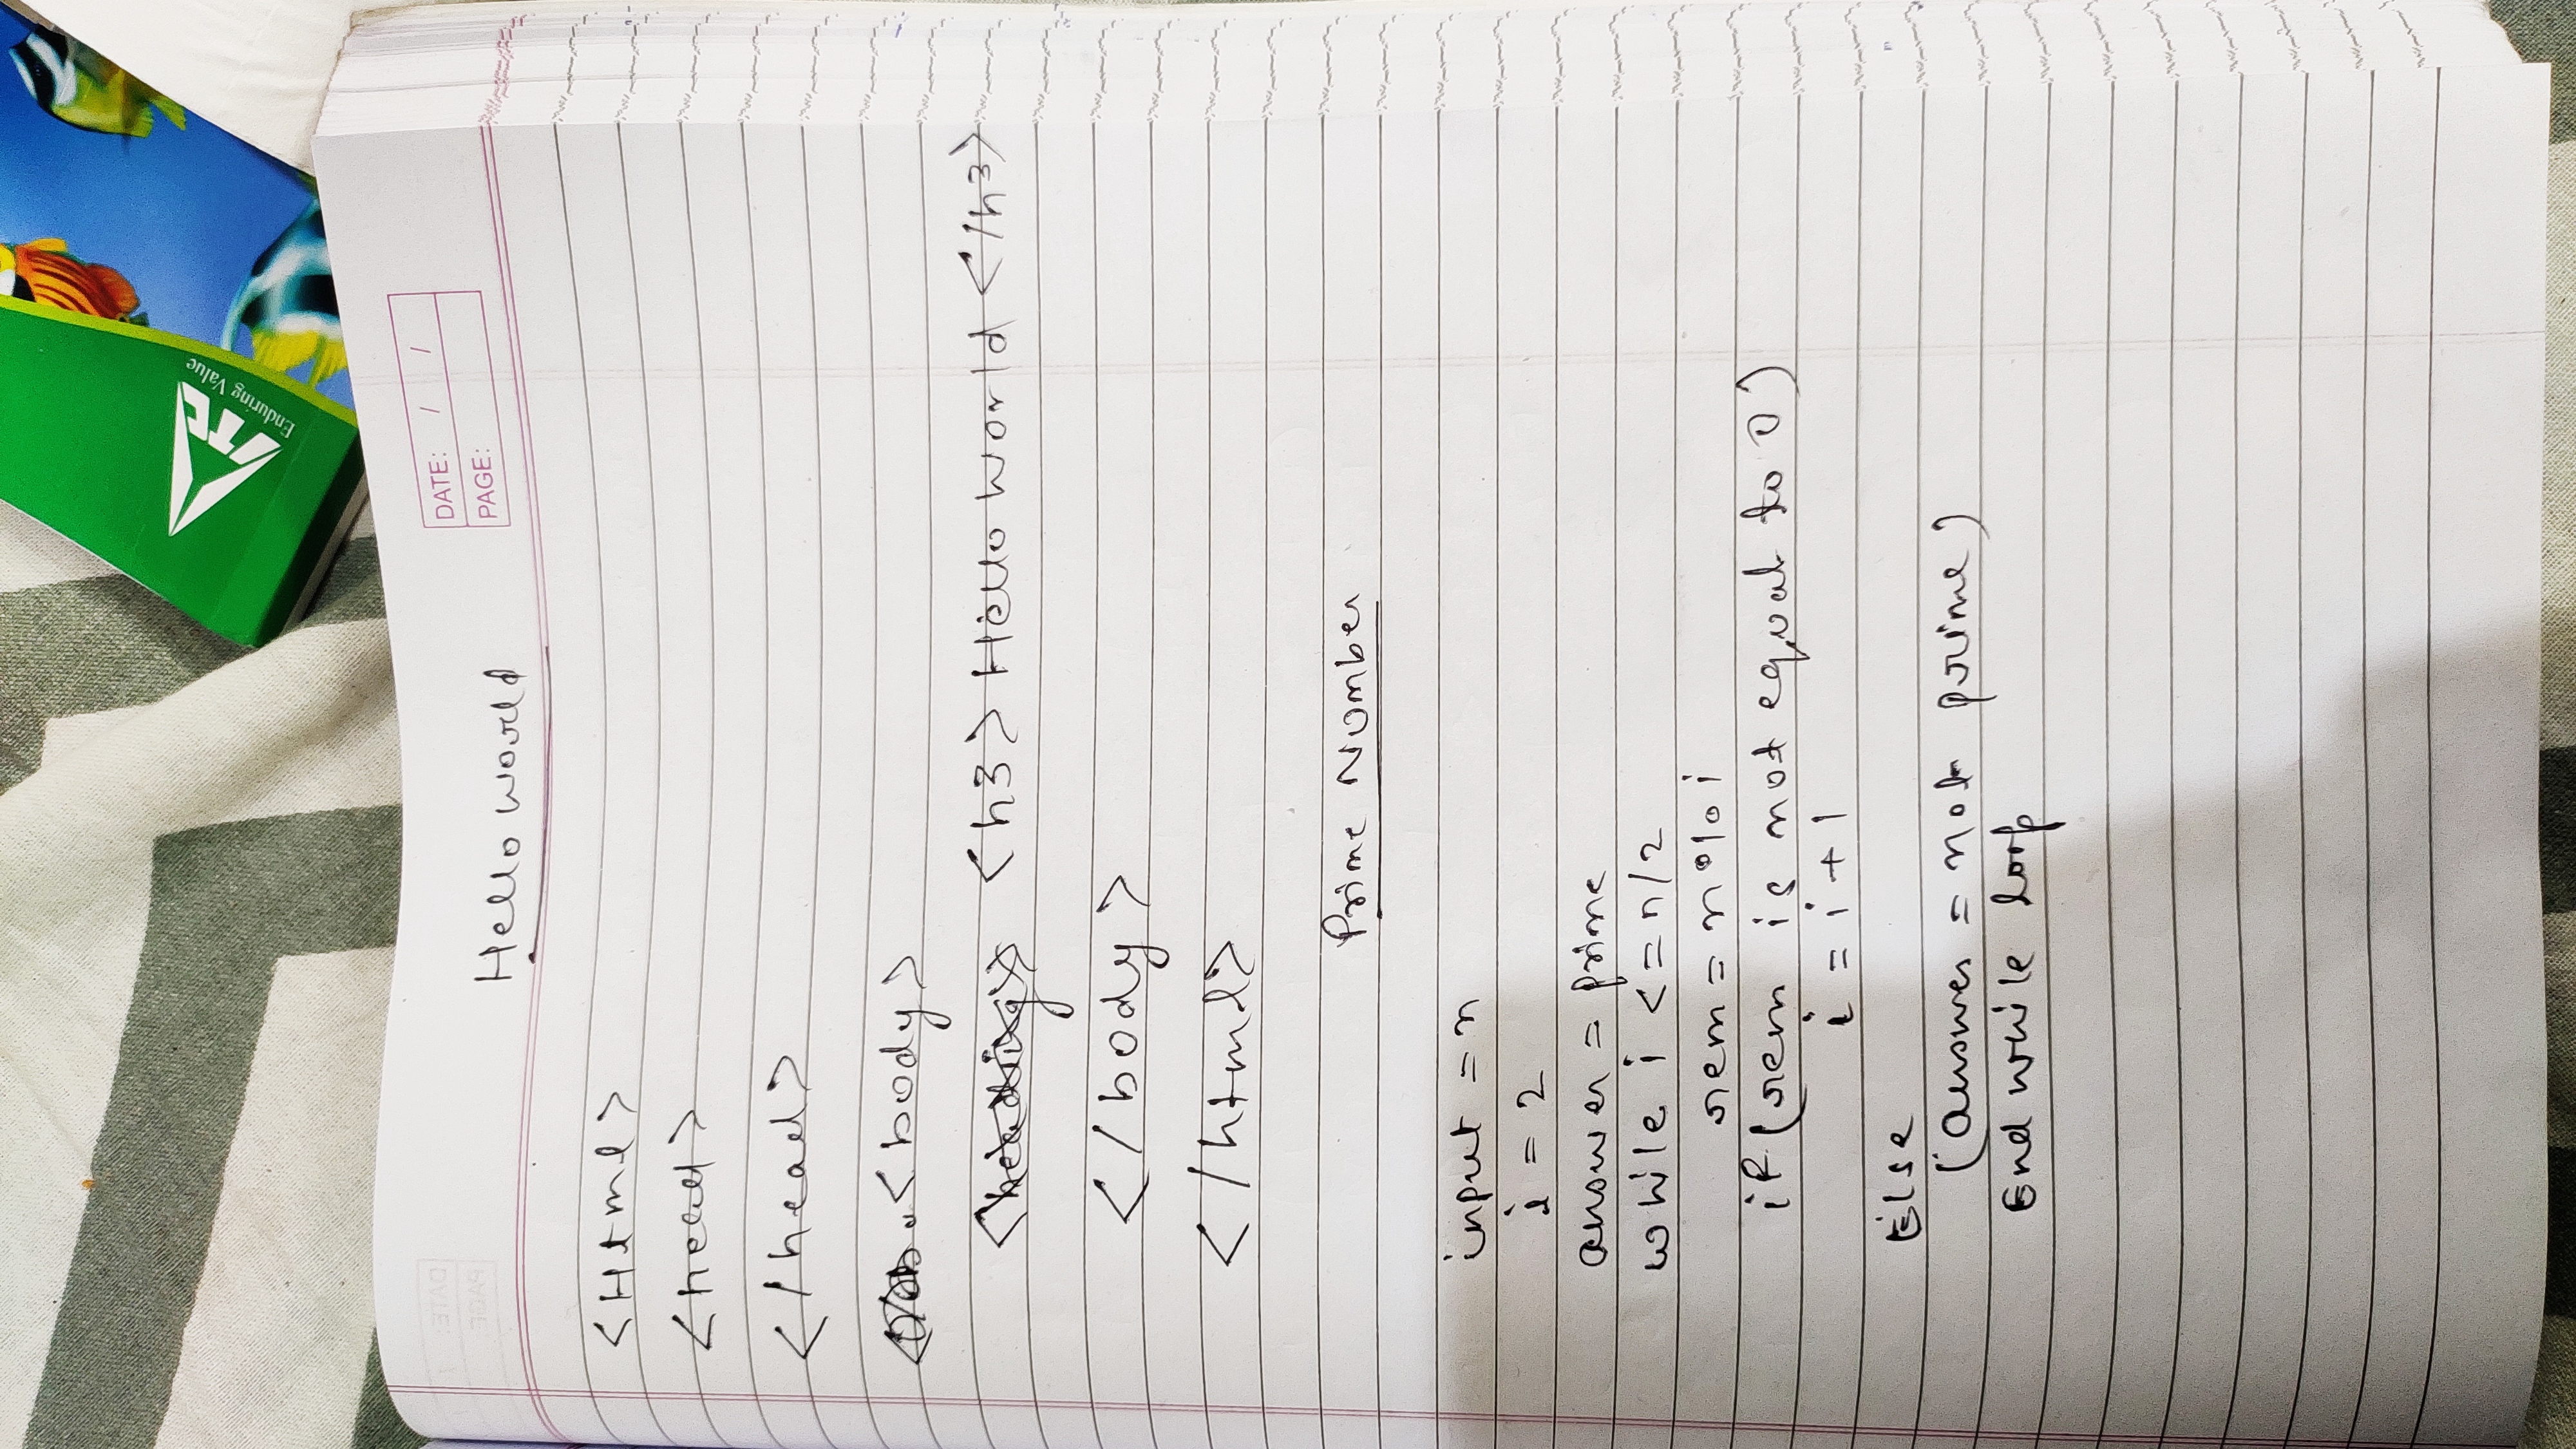 ITC
Enduring Value
DATE: / /
PAGE:
Hello world
<Html>
<head>
</head>
<body>
<h3> Hello World </h3>
</body>
</html>
Prime Number
input = n
i = 2
answer = prime
while i <= n/2
rem = n % i
if (rem is not equal to 0)
i = i + 1
Else
(answer = not prime)
End while loop